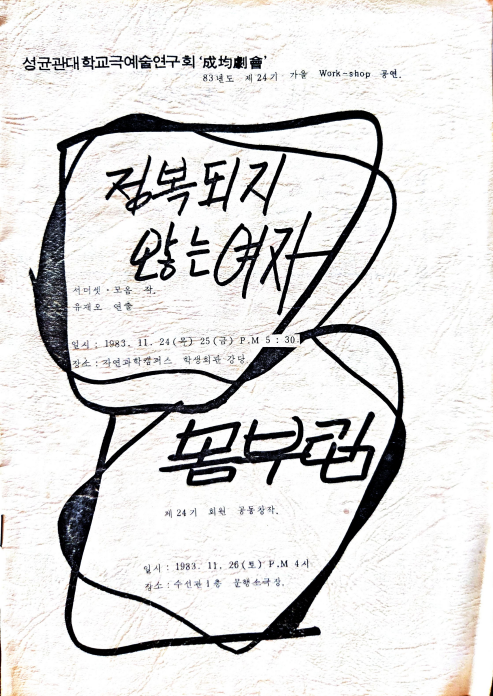 성균관대학교극예술연구회 '成均劇會'
83년도 제24기 가을 Work-shop 공연.
정복되지
않는 여자
서머셋·모옴 작.
유재오 연출
일시 : 1983. 11. 24(목) 25(금) P.M 5 : 30.
장소 : 자연과학캠퍼스 학생회관 강당.
몸부림
제24기 회원 공동창작.
일시 : 1983. 11. 26(토) P.M 4시
장소 : 수선관 1층 문행소극장.